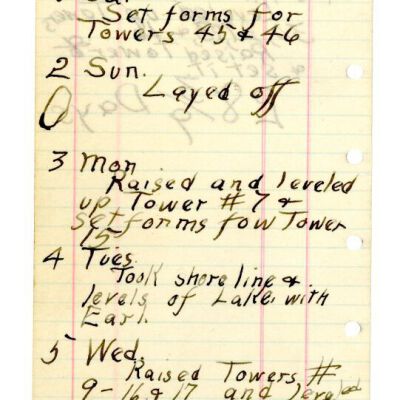 Sat.
Set forms for
Towers 45 & 46
2 Sun.
Layed off
3 Mon
Raised and leveled
up Tower #7 &
Set forms fow Tower
15
4 Tues.
Took shore line &
levels of Lake with
Earl.
5 Wed.
Raised Towers #
9-16 & 17 and leveled